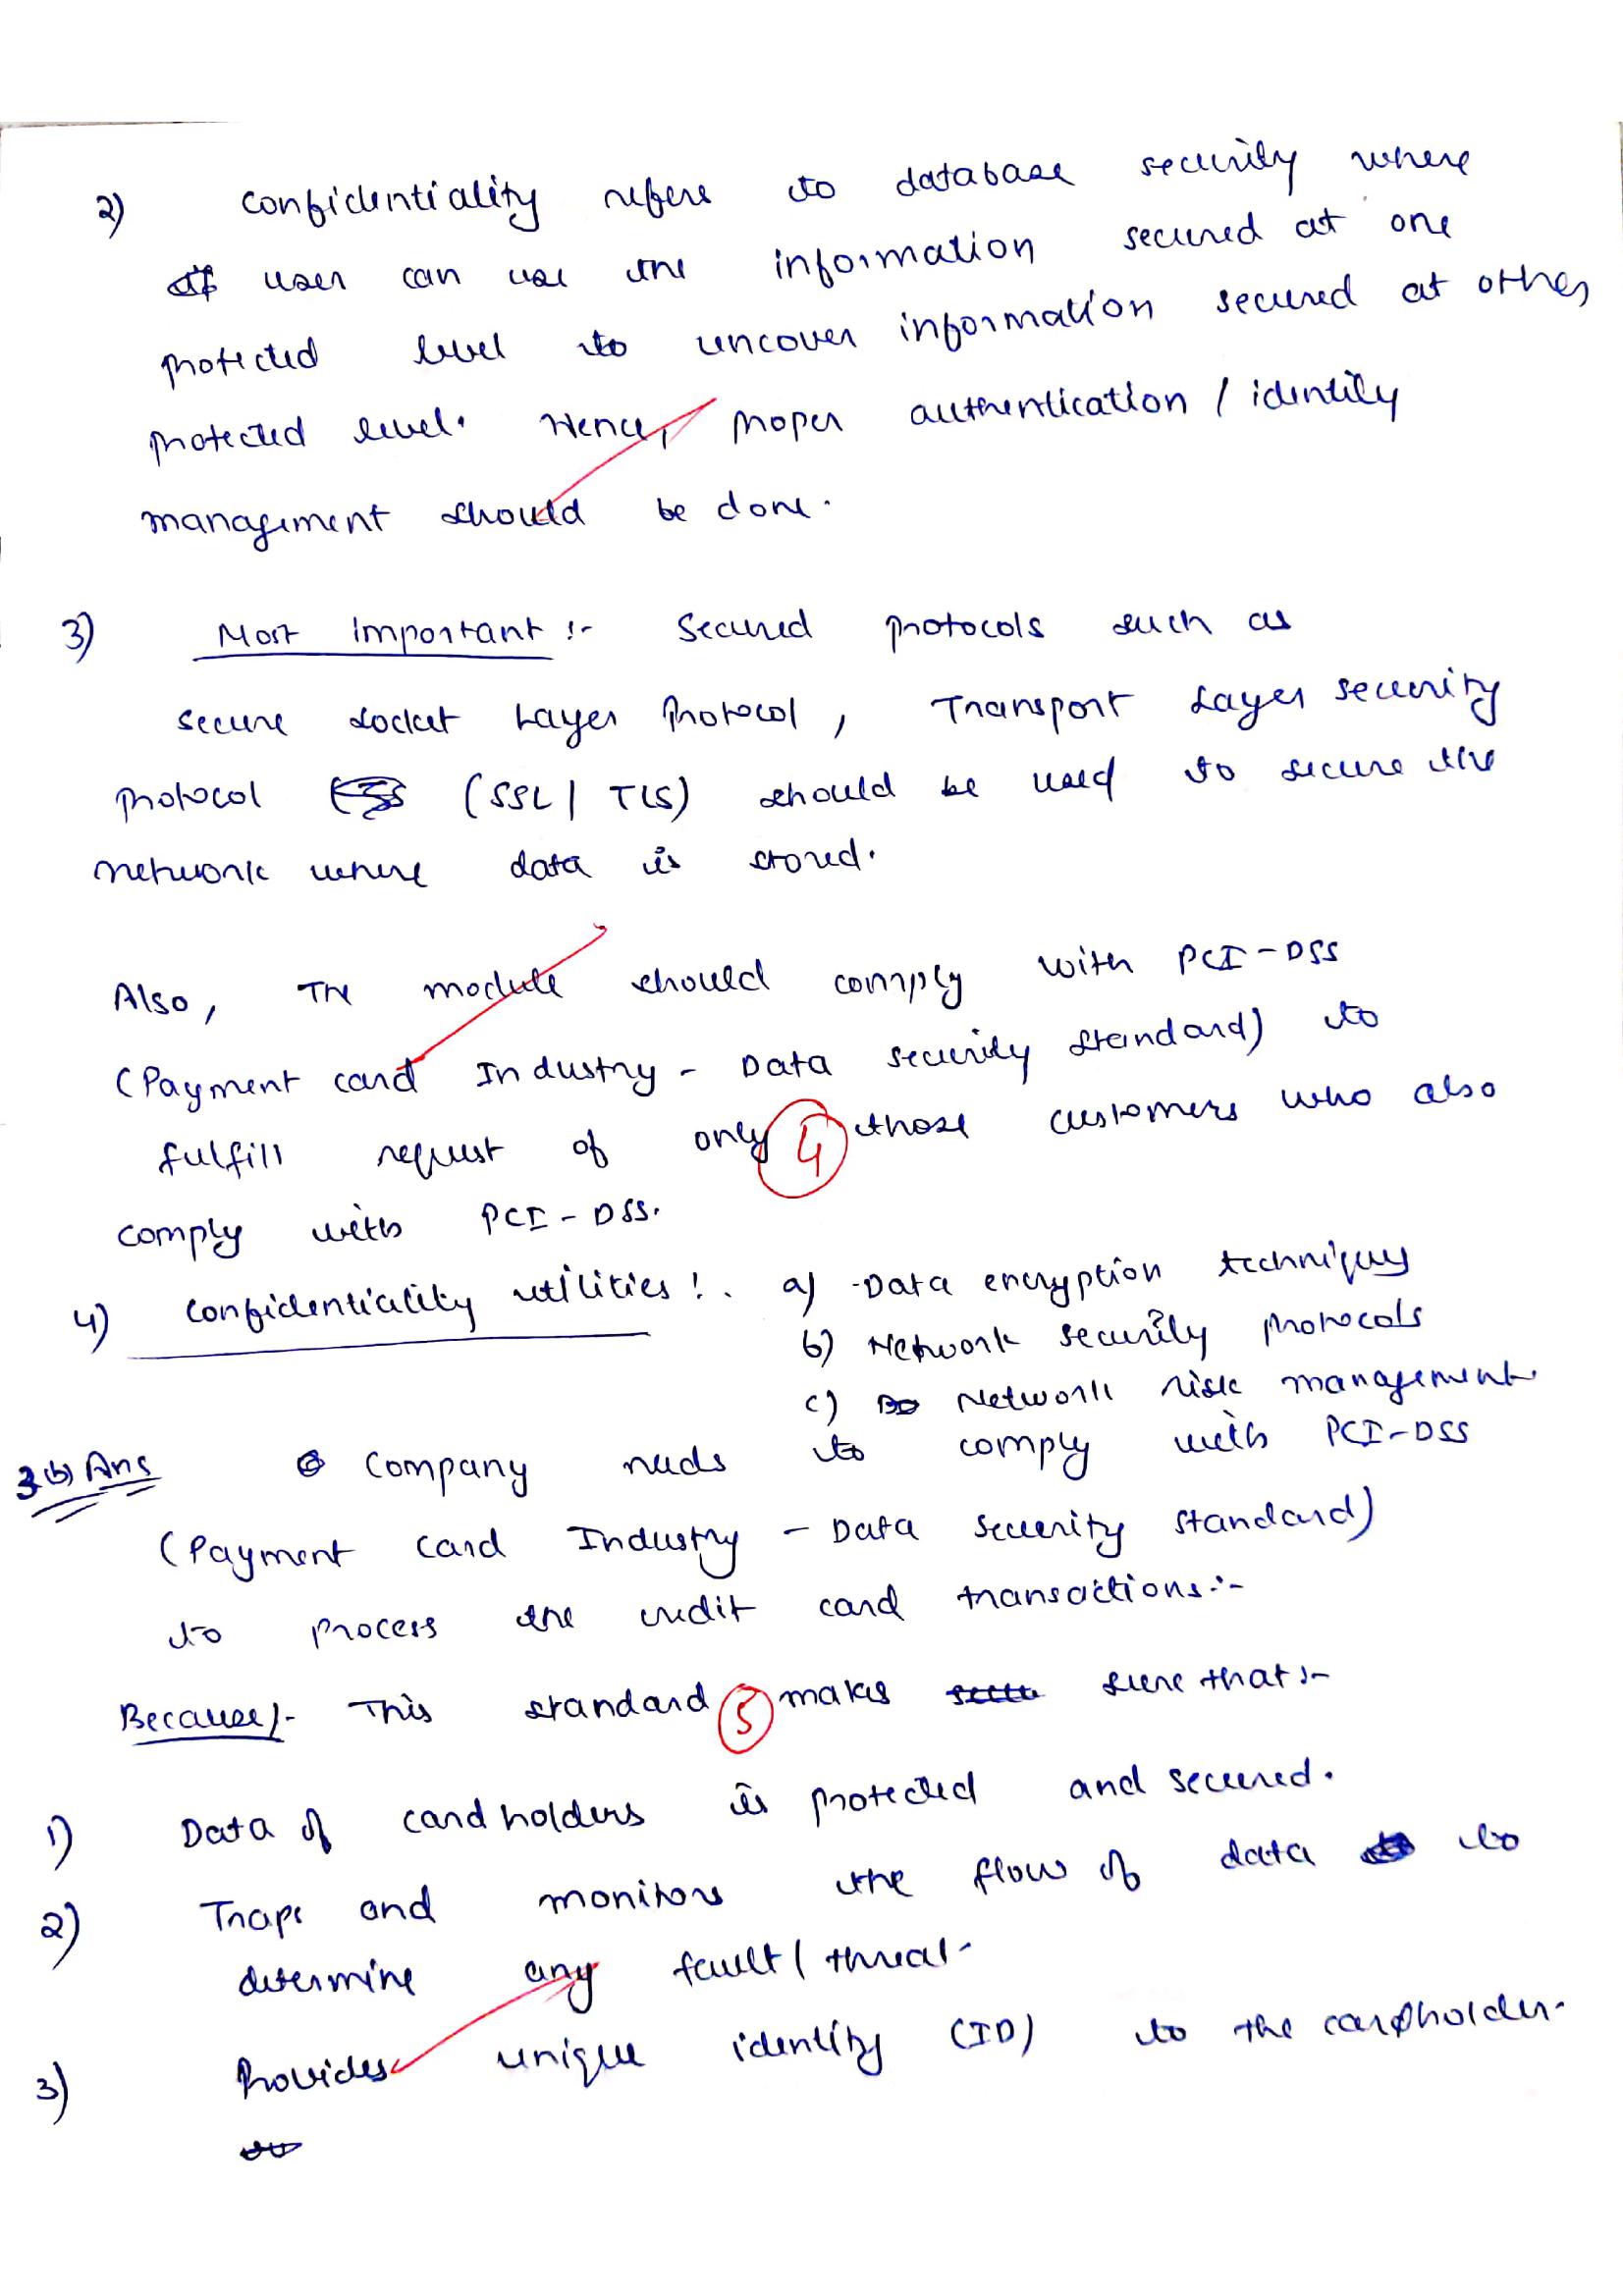 2) Confidentiality refers to database security where
user can use the information secured at one
protected level to uncover information secured at other
protected level. Hence, proper authentication / identity
management should be done.
3) Most Important :- Secured protocols such as
secure socket Layer Protocol, Transport Layer security
protocol (SSL / TLS) should be used to secure the
network where data is stored.
Also, The module should comply with PCI-DSS
(Payment card Industry - Data security standard) to
fulfill request of only those customers who also
4
comply with PCI-DSS.
4) Confidentiality utilities :- a) Data encryption techniques
b) Network security protocols
c) Network risk management
3(b) Ans Company needs to comply with PCI-DSS
(Payment Card Industry - Data security standard)
to process the credit card transactions :-
Because :- This standard makes sure that :-
5
1) Data of cardholders is protected and secured.
2) Traps and monitors the flow of data to
determine any fault / threat.
3) Provides unique identity (ID) to the cardholder.